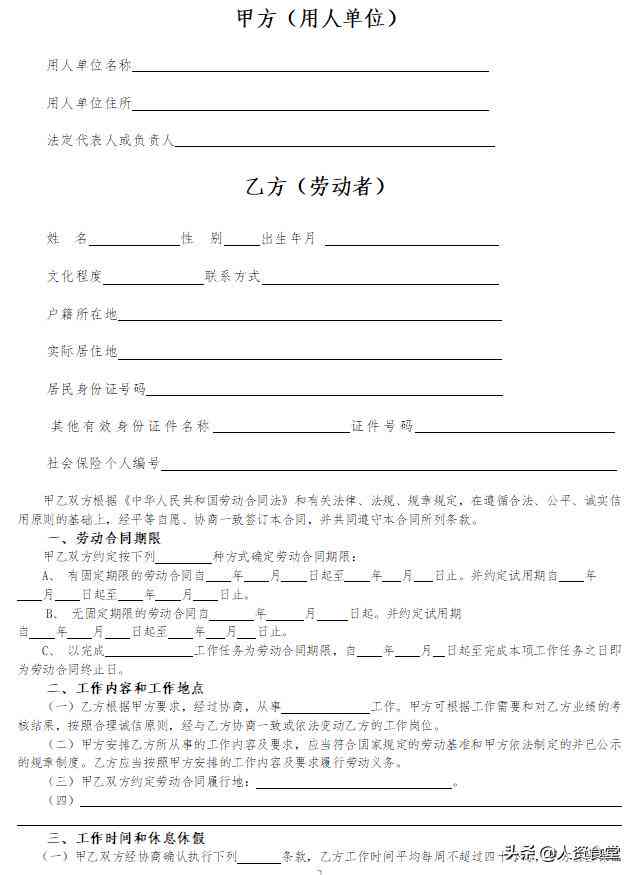 甲方（用人单位）
用人单位名称
用人单位住所
法定代表人或负责人
乙方（劳动者）
姓 名 性 别 出生年月
文化程度 联系方式
户籍所在地
实际居住地
居民身份证号码
其他有效身份证件名称 证件号码
社会保险个人编号
甲乙双方根据《中华人民共和国劳动合同法》和有关法律、法规、规章规定，在遵循合法、公平、诚实信
用原则的基础上，经平等自愿、协商一致签订本合同，并共同遵守本合同所列条款。
一、劳动合同期限
甲乙双方约定按下列 种方式确定劳动合同期限：
A、 有固定期限的劳动合同自 年 月 日起至 年 月 日止。并约定试用期自 年
月 日起至 年 月 日止。
B、 无固定期限的劳动合同自 年 月 日起。并约定试用期
自 年 月 日起至 年 月 日止。
C、 以完成 工作任务为劳动合同期限，自 年 月 日起至完成本项工作任务之日即
为劳动合同终止日。
二、工作内容和工作地点
（一）乙方根据甲方要求，经过协商，从事 工作。甲方可根据工作需要和对乙方业绩的考
核结果，按照合理诚信原则，经与乙方协商一致或依法变动乙方的工作岗位。
（二）甲方安排乙方所从事的工作内容及要求，应当符合国家规定的劳动基准和甲方依法制定的并已公示
的规章制度。乙方应当按照甲方安排的工作内容及要求履行劳动义务。
（三）甲乙双方约定劳动合同履行地： 。
（四）
三、工作时间和休息休假
（一）甲乙双方经协商确认执行下列 条款，乙方工作时间平均每周不超过四十
头条@人资食堂